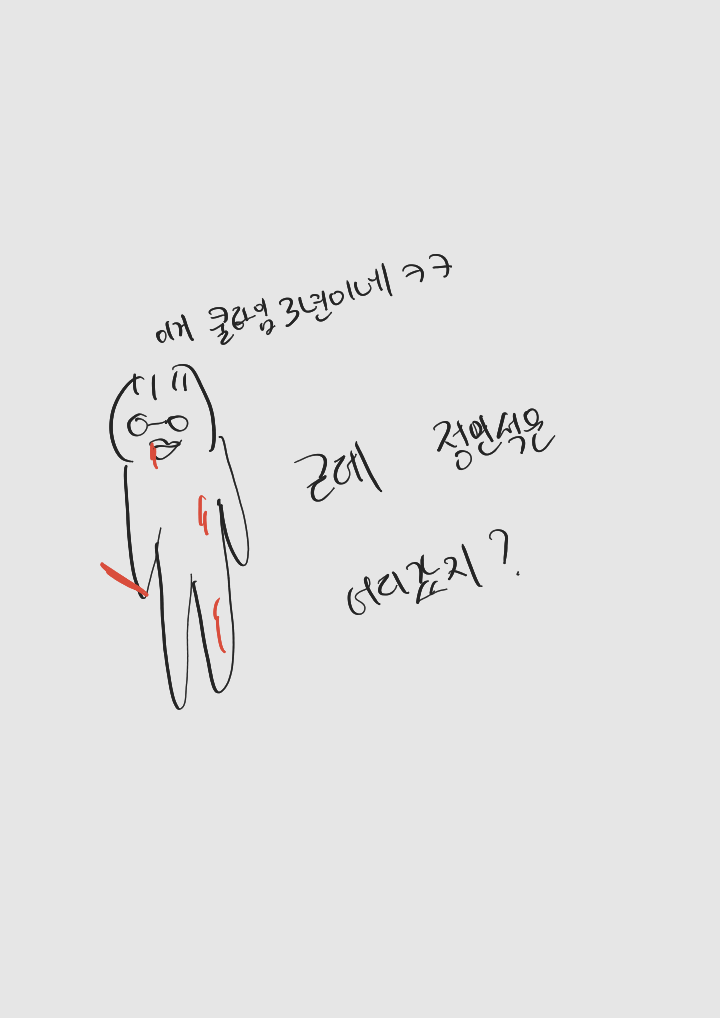 이거 쿨타임 3년이네 ㅋㅋ
근데 정연석은
어디갔지?